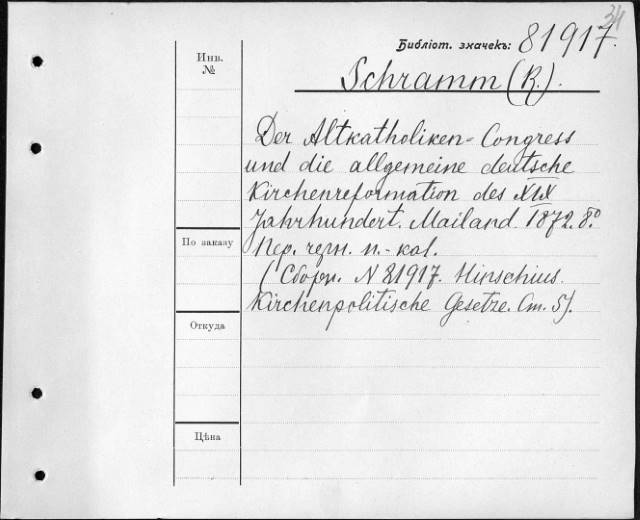 34
Библіот. значекъ: 81917.
Инв.
№
Schramm (R.).
Der Altkatholiken-Congress
und die allgemeine deutsche
Kirchenreformation des XIX
Jahrhundert. Mailand. 1872. 8.º
По заказу
Пер. черн. п.-кол.
(Сборн. N 81917. Hinschius.
Kirchenpolitische Gesetze. Ст. 5).
Откуда
Цѣна